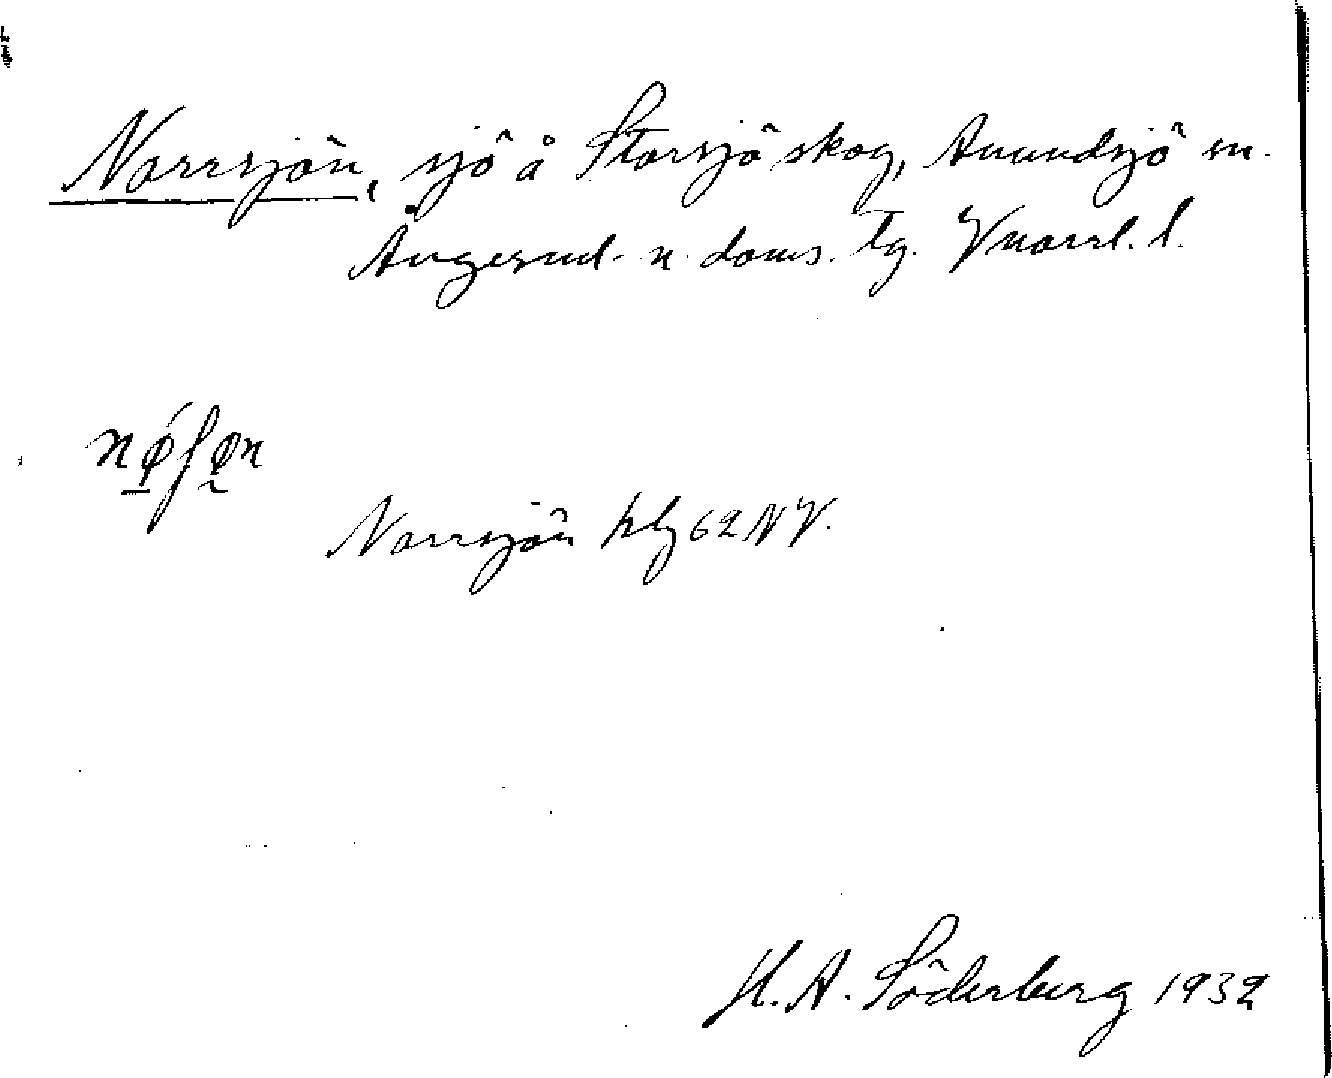 Norrsjön, sjö å Storsjö skog, Anundsjö sn.
Ångerml. n. doms. tg. Vnorrl. l.
Norrsjön hlg 62 NV.
H. A. Söderberg 1932